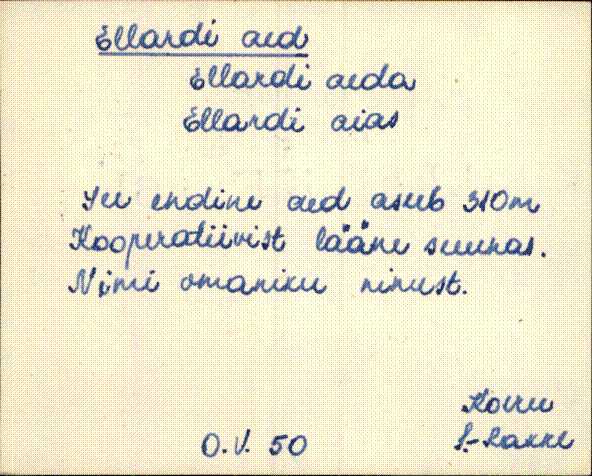 Ellardi aed
Ellardi aeda
Ellardi aias
See endine aed asub 310m
Kooperatiivist lääne suunas.
Nimi omaniku nimest.
Koeru
V.-Rakke
O.V. 50